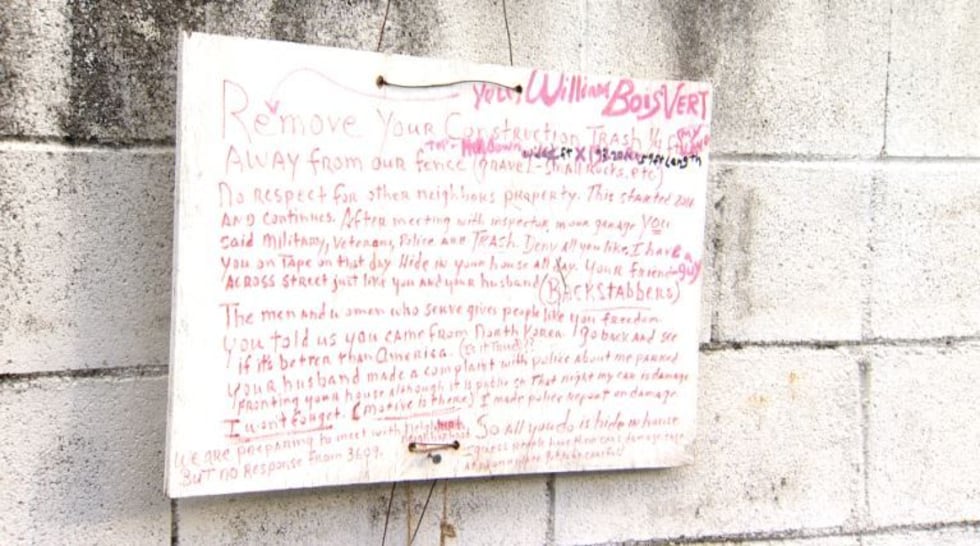 You, William BoisVert
Remove Your Construction Trash
AWAY from our fence (gravel-small Rocks, etc)
No respect for other neighbors property. This started
AND continues. After meeting with inspector in our garage YOU
said Military, Veterans, Police are TRASH. Deny all you like, I have a
You on Tape on that day Hide in your house all day. Your friend-guy
ACROSS street just like you and your husband (BACKSTABBERS)
The men and women who serve gives people like you freedom.
You told us you came from North Korea. Go back and see
if it's better than America. (Is it True)??
Your husband made a complaint with police about me parked
fronting your house although it is public st That night my car is damage
I won't forget. (Motive is there) I made police report on damage.
We are preparing to meet with So all you do is hide in house
BUT no Response from 3609.